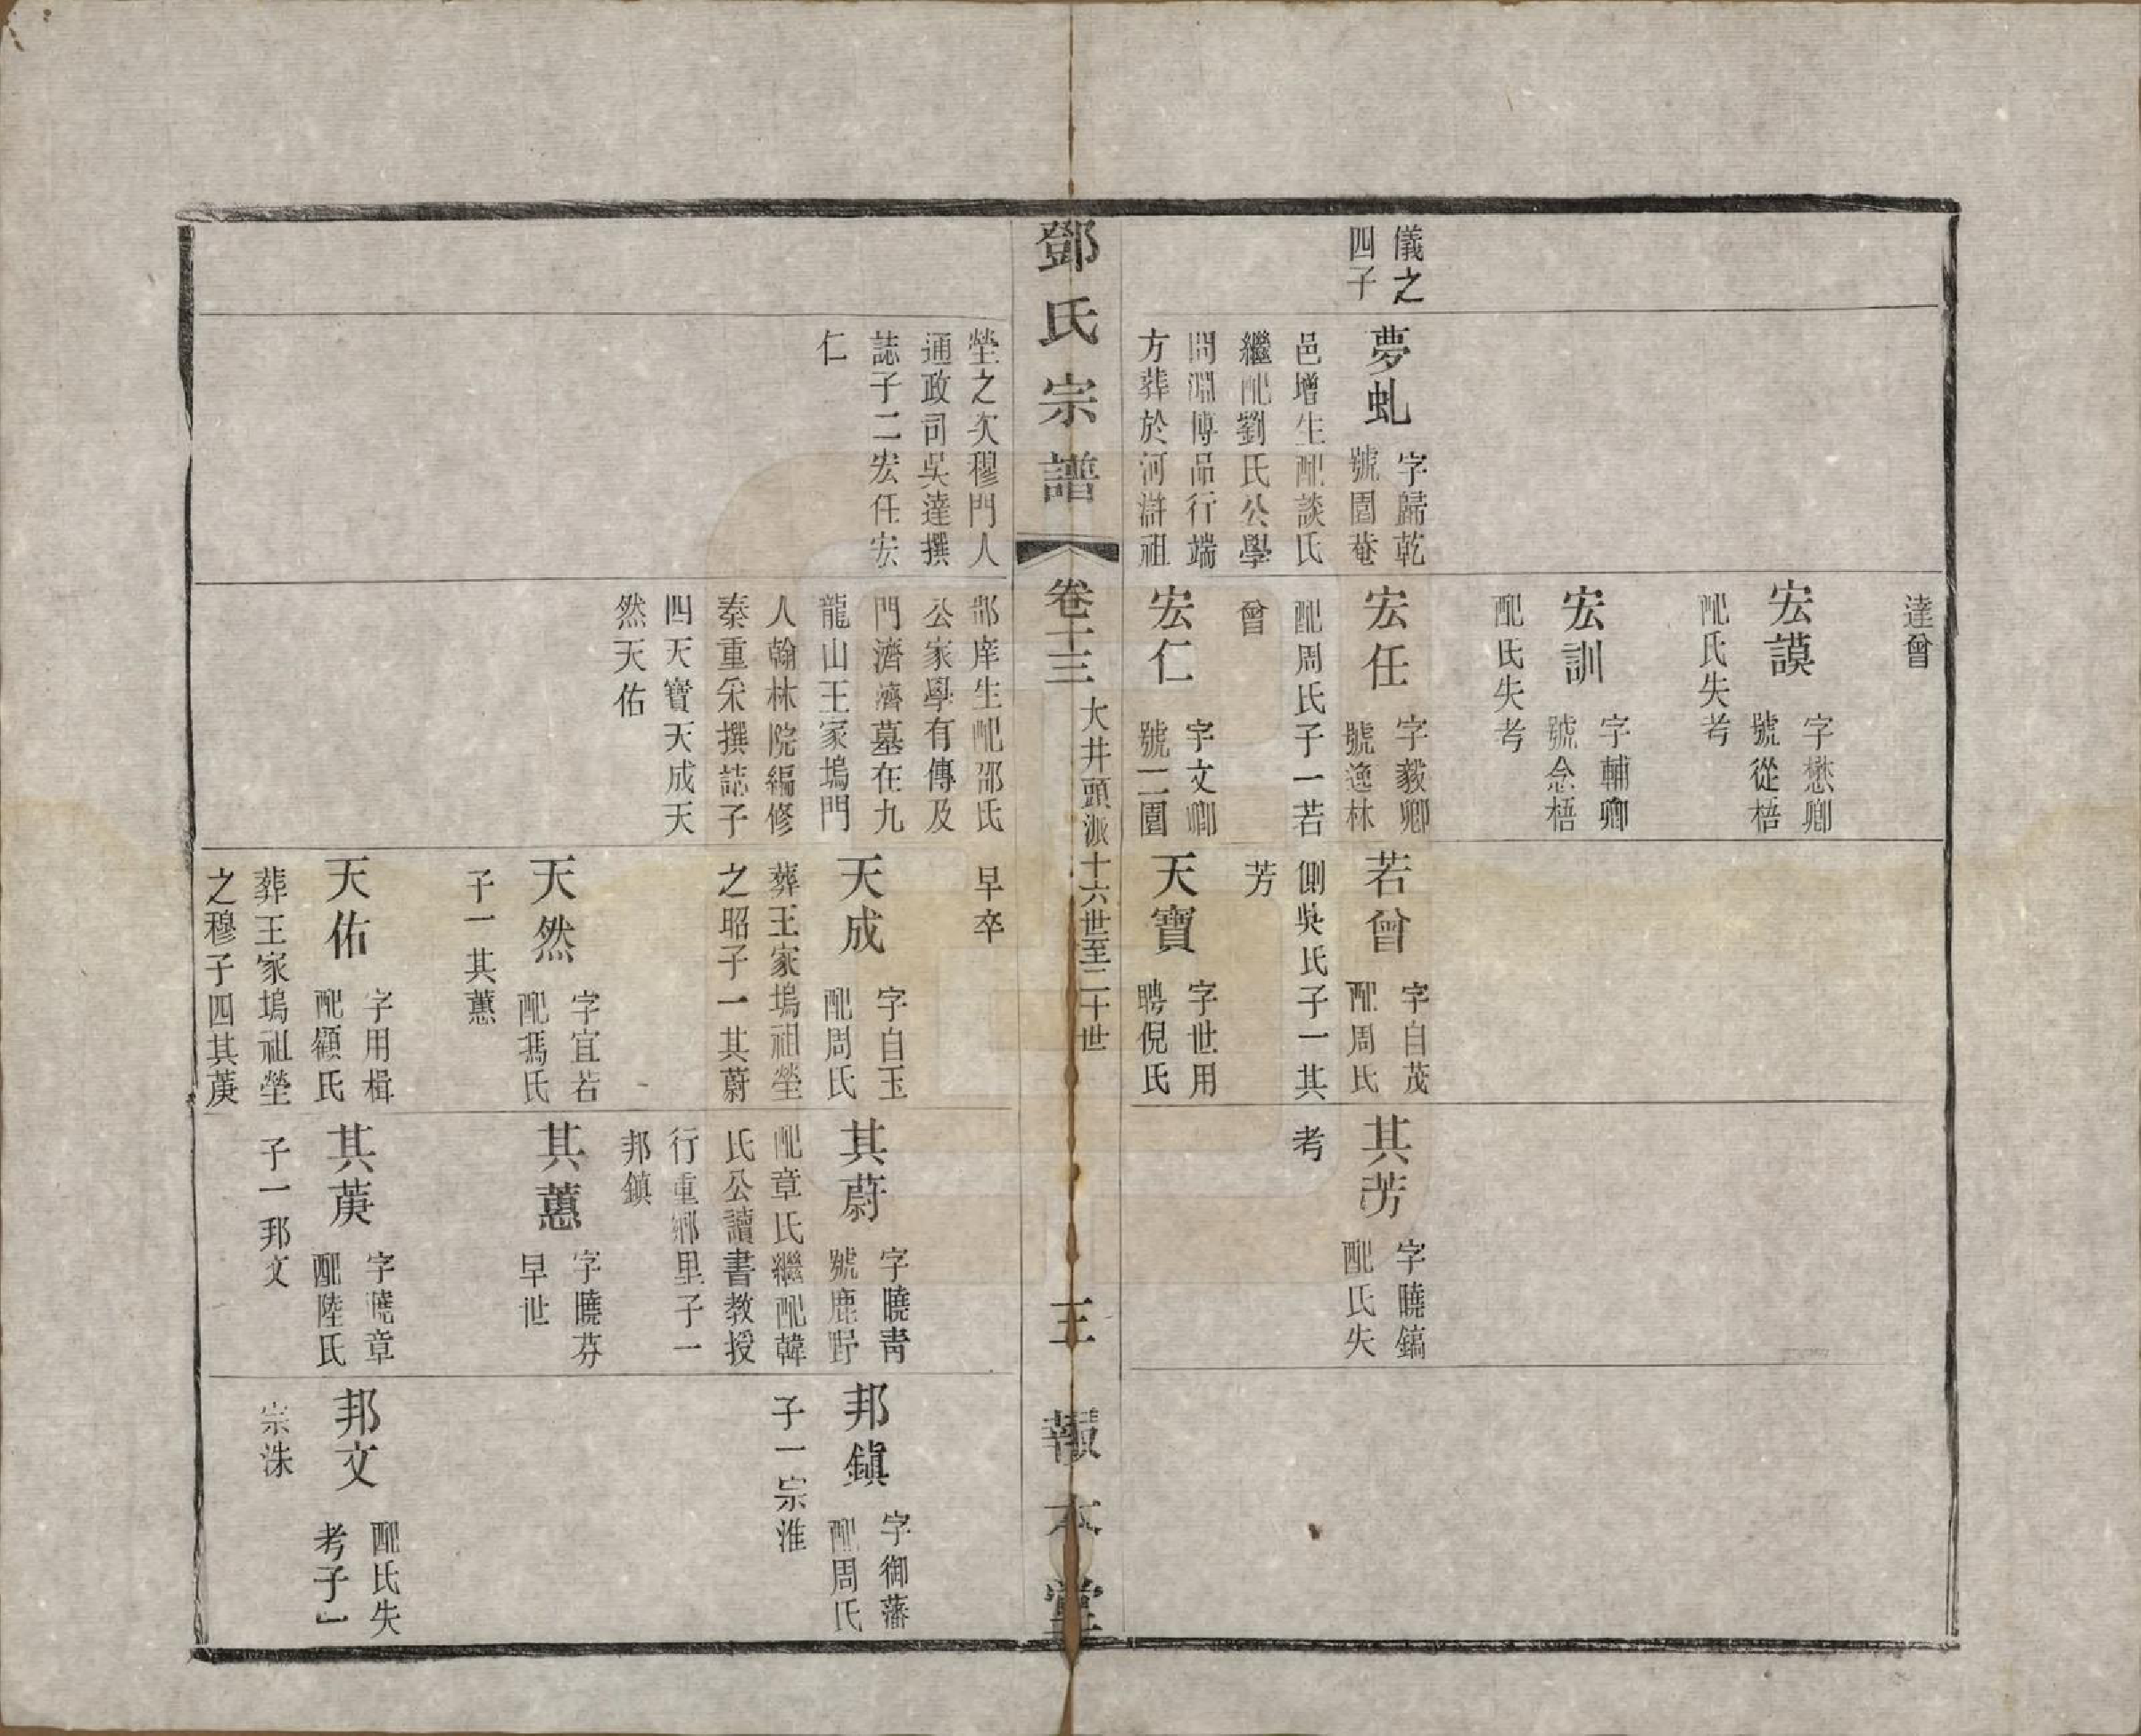 儀之
四子
夢虬
字歸乾
號園菴
邑增生配談氏
繼配劉氏公學
問淵博品行端
方葬於河滸祖
達曾
宏謨
字懋卿
號從梧
配氏失考
宏訓
字輔卿
號念梧
配氏失考
宏任
字毅卿
號逸林
配周氏子一若
曾
宏仁
字文卿
號二園
若曾
字自茂
配周氏
側吳氏子一其
芳
天寶
字世用
聘倪氏
其芳
字曉鎬
配氏失
考
鄧氏宗譜
卷十三
大井頭派十六世至二十世
三
報本堂
塋之次穆門人
通政司吳達撰
誌子二宏任宏
仁
郡庠生配邵氏
公家學有傳及
門濟濟墓在九
龍山王家塢門
人翰林院編修
秦重采撰誌子
四天寶天成天
然天佑
早卒
天成
字自玉
配周氏
葬王家塢祖塋
之昭子一其蔚
天然
字宜若
配馮氏
子一其蕙
天佑
字用楫
配顧氏
葬王家塢祖塋
之穆子四其蓂
其蔚
字曉青
號鹿野
配章氏繼配韓
氏公讀書教授
行重鄉里子一
邦鎮
其蕙
字曉芬
早世
其蓂
字曉章
配陸氏
子一邦文
邦鎮
字御藩
配周氏
子一宗淮
邦文
配氏失
考子一
宗洙